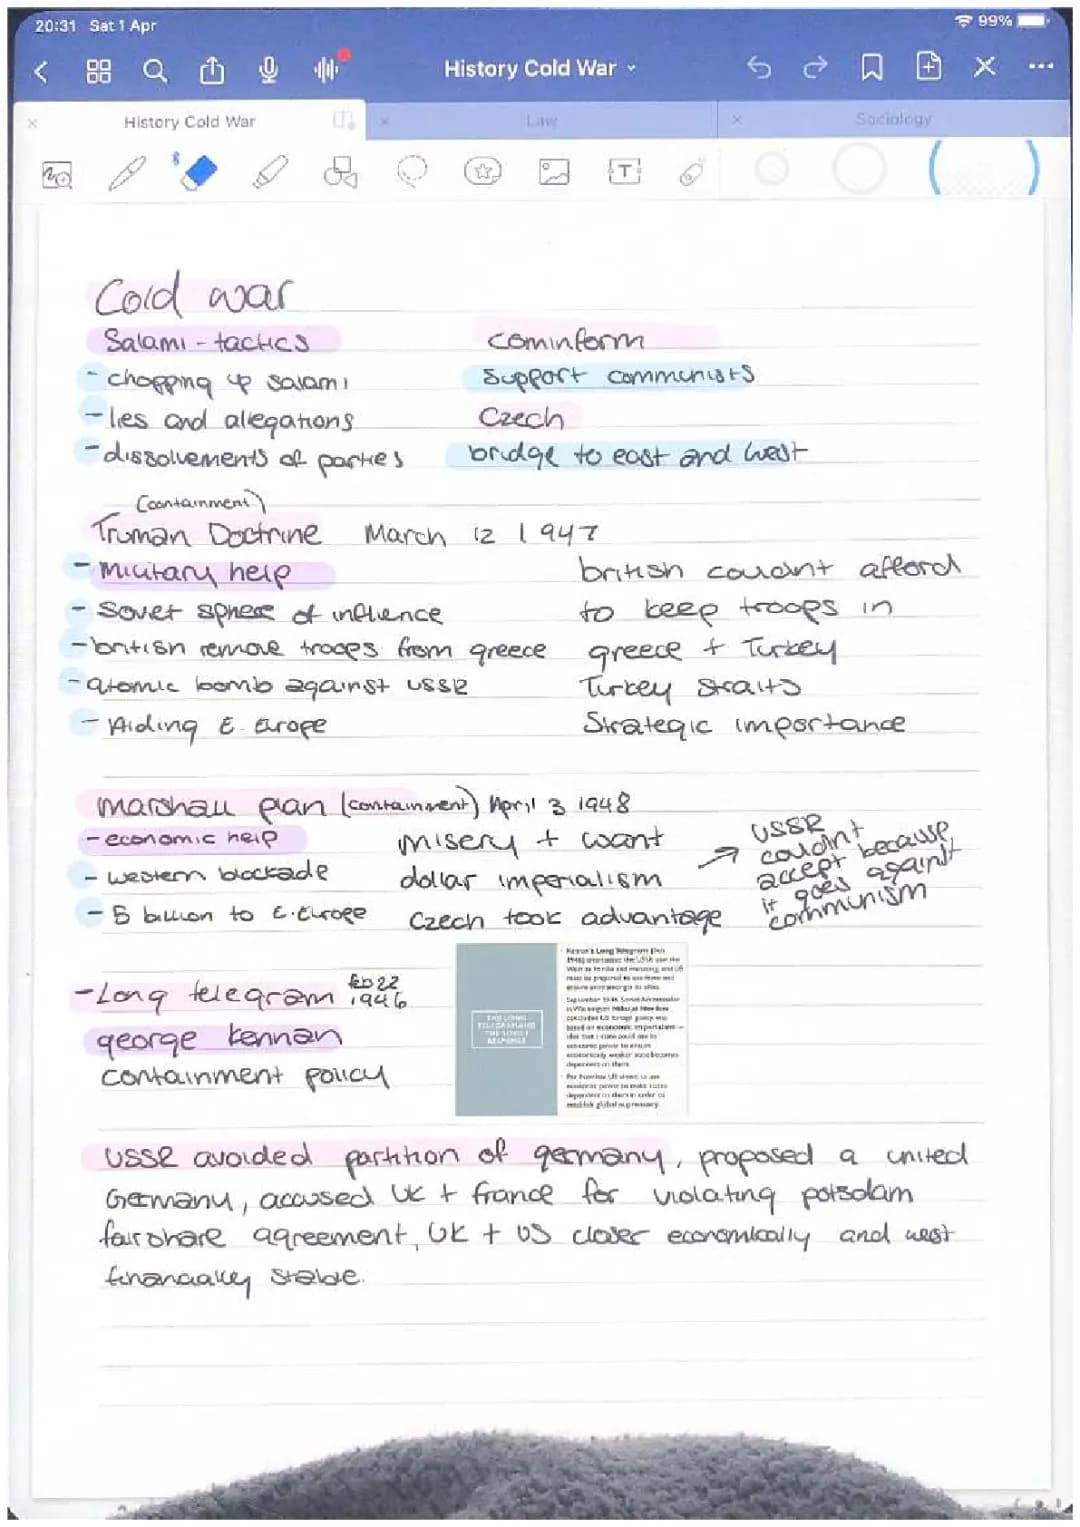 20:31 Sat 1 Apr
99%
History Cold War
History Cold War
Law
Sociology
Cold war
Salami - tactics
cominform
- chopping up salami
Support communists
- lies and allegations
Czech
- dissolvements of parties
bridge to east and west
(containment)
Truman Doctrine March 12 1947
- Military help
british couldnt afford
- Soviet sphere of influence
to keep troops in
- british remove troops from greece
greece + Turkey
- atomic bomb against USSR
Turkey Straits
- Aiding E. Europe
Strategic importance
marshall plan (containment) April 3 1948
- economic help
misery + want
USSR
couldnt
accept because
it goes against
communism
- western blockade
dollar imperialism
- 5 billion to E. Europe
Czech took advantage
- Long telegram feb 22 1946
george kennan
containment policy
THE LONG
TELEGRAM AND
THE SOVIET
RESPONSE
USSR avoided partition of germany, proposed a united
Germany, accused UK + france for violating potsdam
fairshare agreement, UK + US closer economically and west
financially stable.